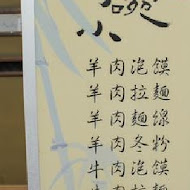 小碗
羊肉泡饃
羊肉拉麵
羊肉麵線
羊肉冬粉
牛肉泡饃
牛肉拉麵